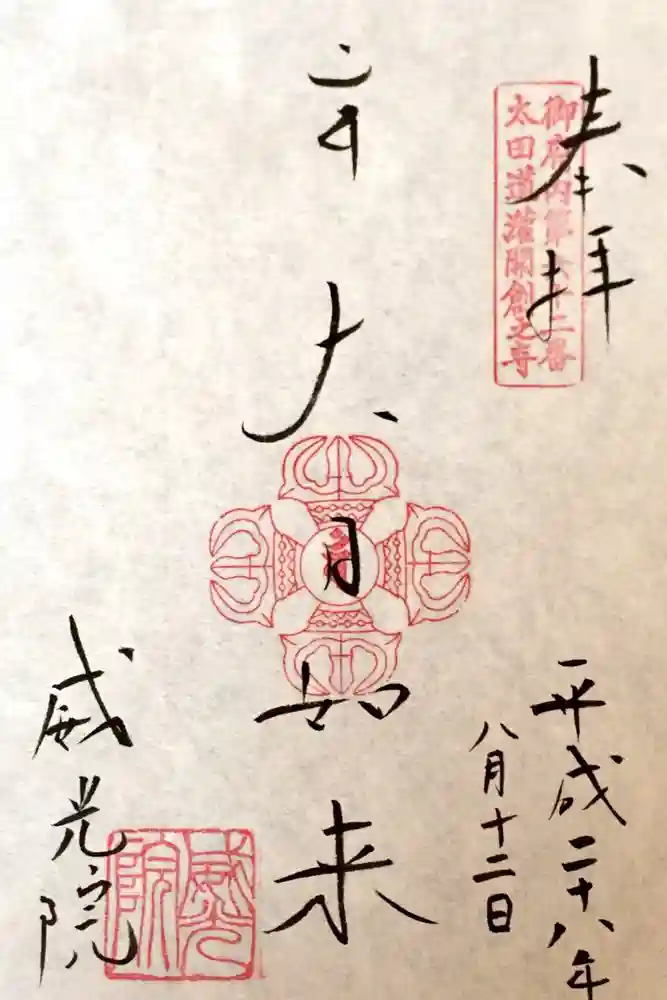 奉拝
御府内第六十二番
太田道灌開創之寺
平成二十八年
八月十二日
大日如来
威光院
威光院